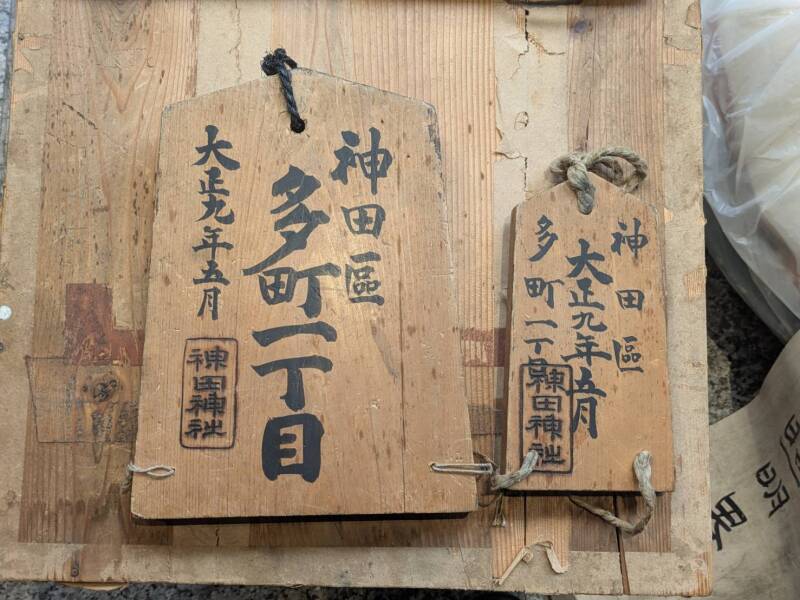 神田區
多町一丁目
大正九年五月
神田神社
神田區
大正九年五月
多町一丁目
神田神社